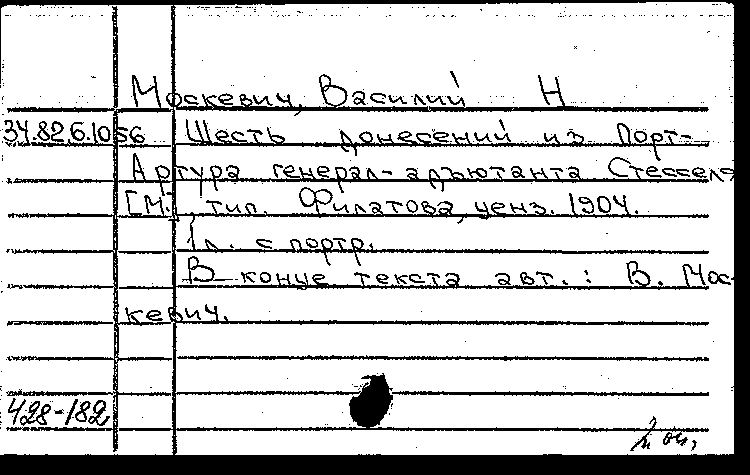 Москевич, Василий Н
34.82.6.1056 Шесть донесений из Порт-
Артура генерал-адъютанта Стесселя
[М.], тип. Филатова, ценз. 1904.
1л. с портр.
В конце текста авт.: В. Мос-
кевич.
428-182